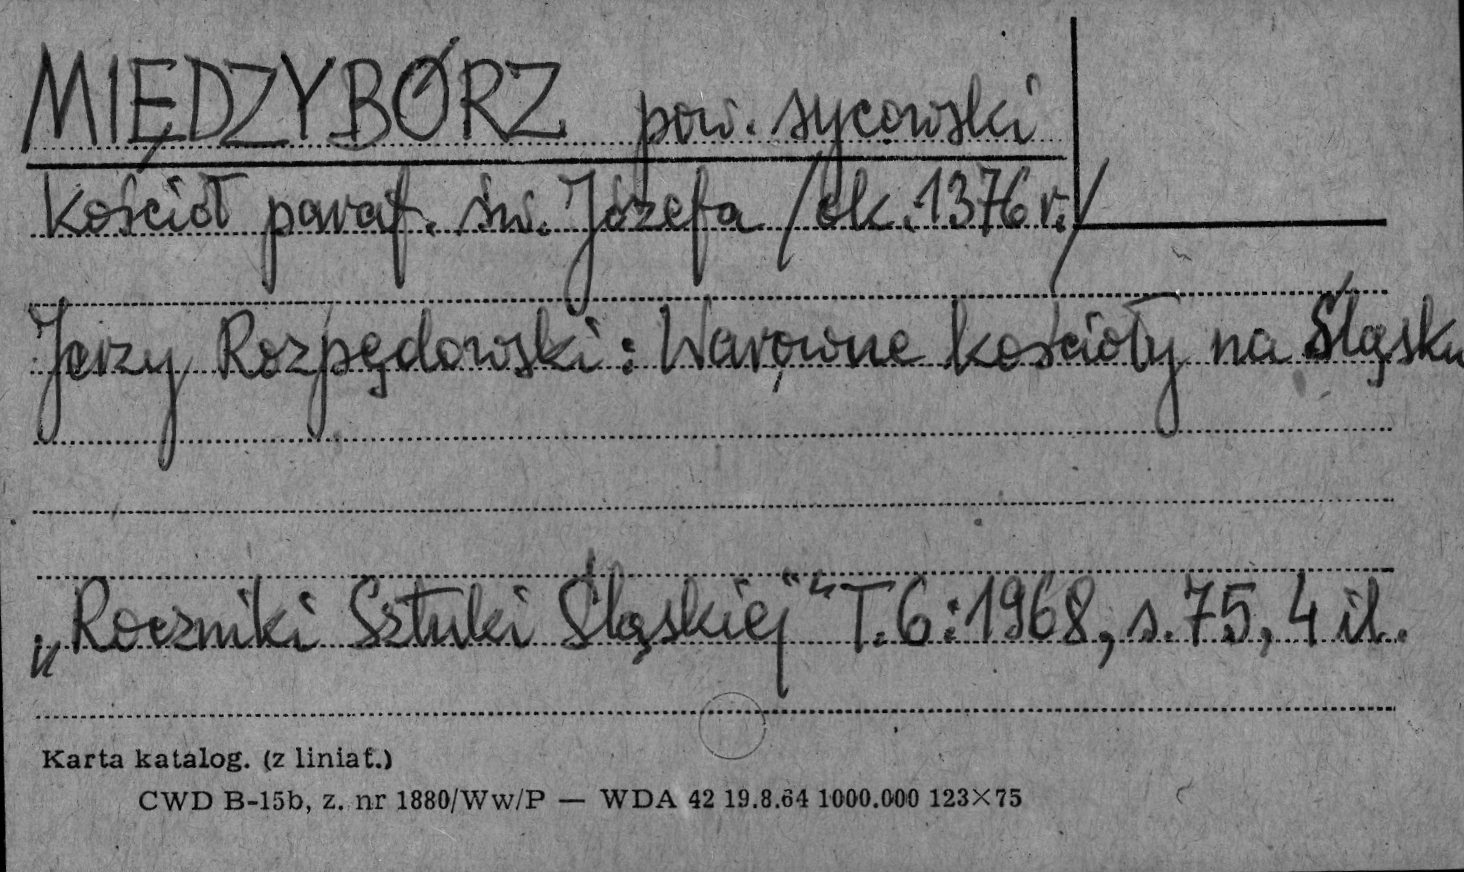 MIĘDZYBÓRZ pow. sycowski
kościół paraf. św. Józefa /ok. 1376 r./
Jerzy Rozpędowski: Warowne kościoły na Śląsku
„Roczniki Sztuki Śląskiej“ T.6:1968, s.75, 4 il.
Karta katalog. (z liniat.)
CWD B-15b, z. nr 1880/Ww/P — WDA 42 19.8.64 1000.000 123×75